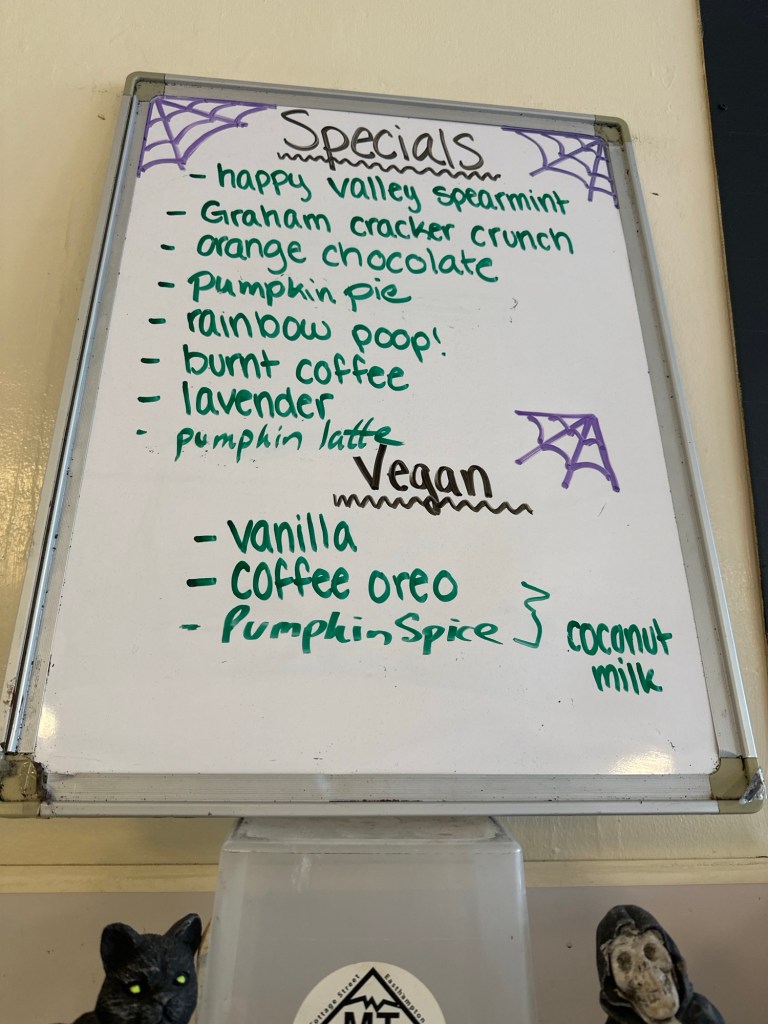 Specials
- happy valley spearmint
- Graham cracker crunch
- orange chocolate
- Pumpkin pie
- rainbow poop!
- burnt coffee
- lavender
- pumpkin latte
Vegan
- vanilla
- coffee oreo
- Pumpkin Spice } coconut
milk
Cottage Street Easthampton
MT